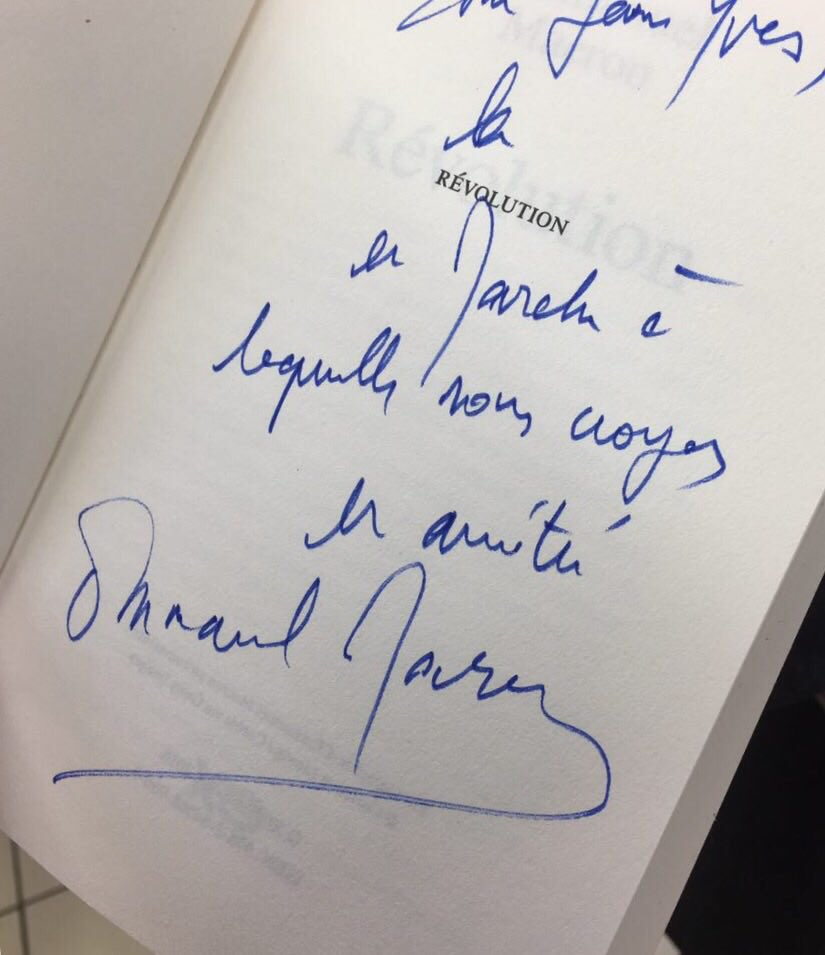 Pour Jean Yves,
Macron
la
Révolution
RÉVOLUTION
en Marche à
laquelle vous croyez
en amitié
Emmanuel Macron